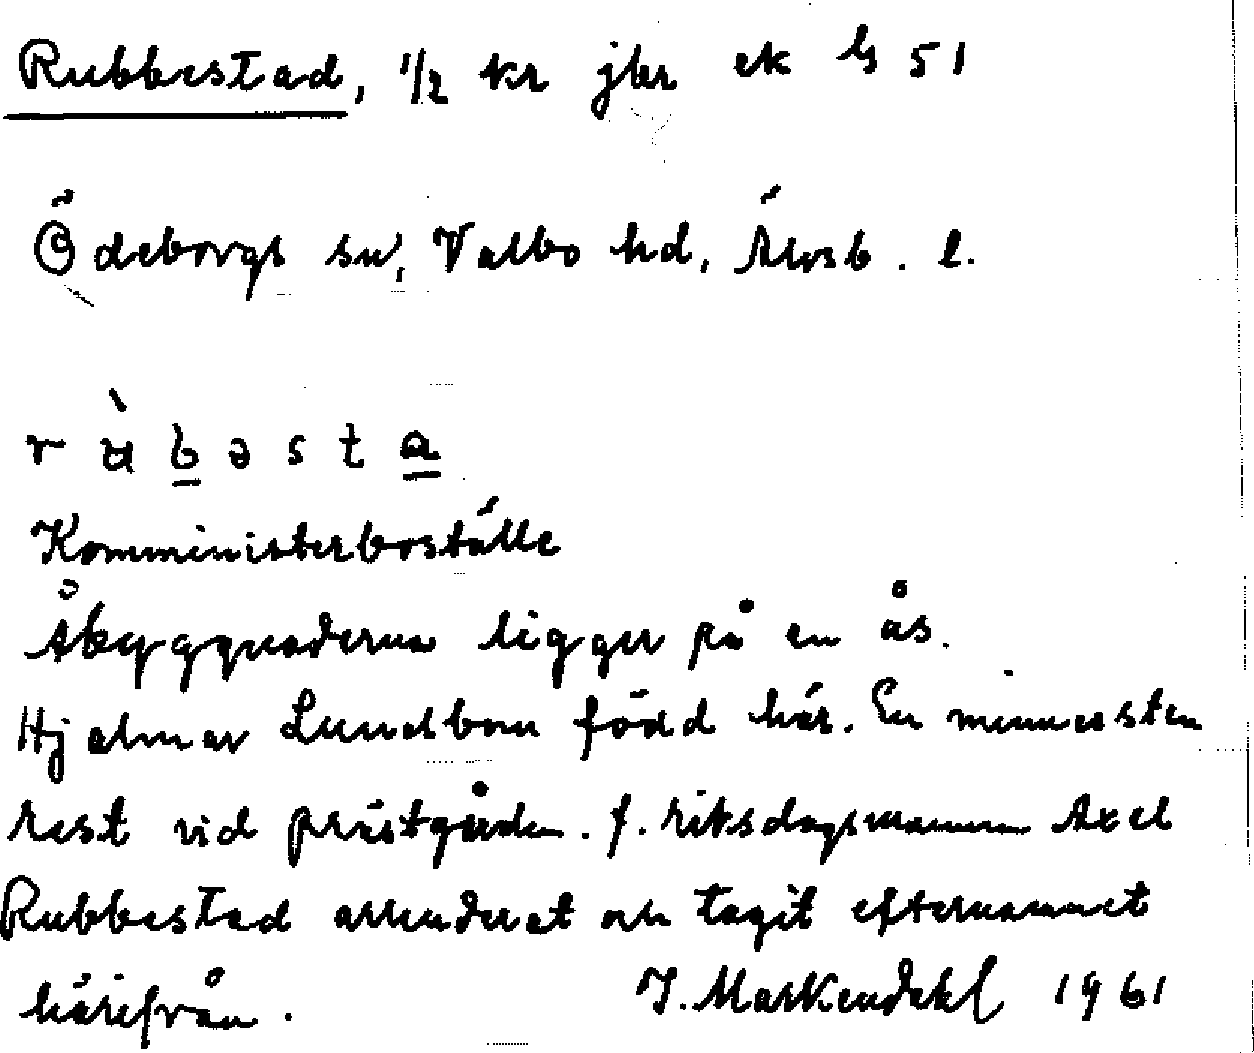 Rubbestad, 1/2 kr jbr ek b 51
Ödeborgs sn, Valbo hd, Älvsb. l.
r ù b ə s t a
Komministerboställe
Åbyggnaderna ligger på en ås.
Hjalmar Lundbom född här. En minnessten
rest vid prästgården. f. riksdagsmannen Axel
Rubbestad arrenderat och tagit efternamnet
härifrån. I. Markendahl 1961